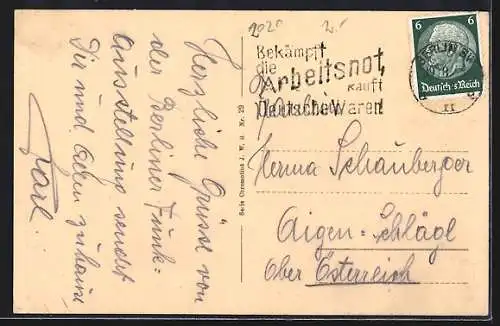 2020
Bekämpft
die
Arbeitsnot,
kauft
Deutsche Waren!
6 6
BERLIN SW
Deutsches Reich
11
Herzliche Grüsse von
der Berliner Funk-
Ausstellung sendet
Dir und Allen zuhause
Karl.
Herma Schauberger
Aigen-Schlägl
Ober Österreich